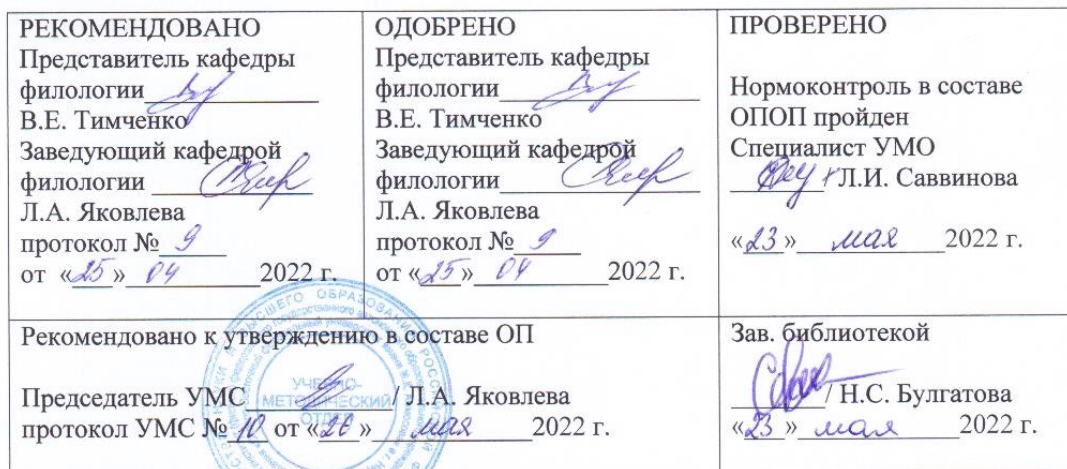 РЕКОМЕНДОВАНО
Представитель кафедры
филологии
В.Е. Тимченко
Заведующий кафедрой
филологии
Л.А. Яковлева
протокол № 9
от «25» 04 2022 г.
ОДОБРЕНО
Представитель кафедры
филологии
В.Е. Тимченко
Заведующий кафедрой
филологии
Л.А. Яковлева
протокол № 9
от «25» 04 2022 г.
ПРОВЕРЕНО
Нормоконтроль в составе
ОПОП пройден
Специалист УМО
/ Л.И. Саввинова
«23» мая 2022 г.
Рекомендовано к утверждению в составе ОП
Председатель УМС / Л.А. Яковлева
протокол УМС № 10 от «26» мая 2022 г.
Зав. библиотекой
/ Н.С. Булгатова
«23» мая 2022 г.
УЧЕБНО-
МЕТОДИЧЕСКИЙ
ОТДЕЛ